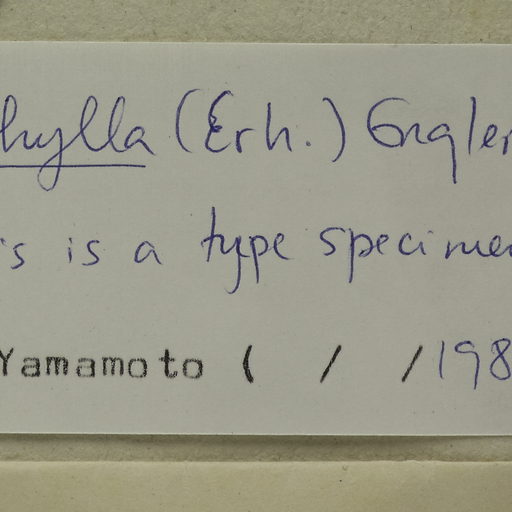 hylla (Erh.) Engler
is is a type specimen
Yamamoto ( / /198